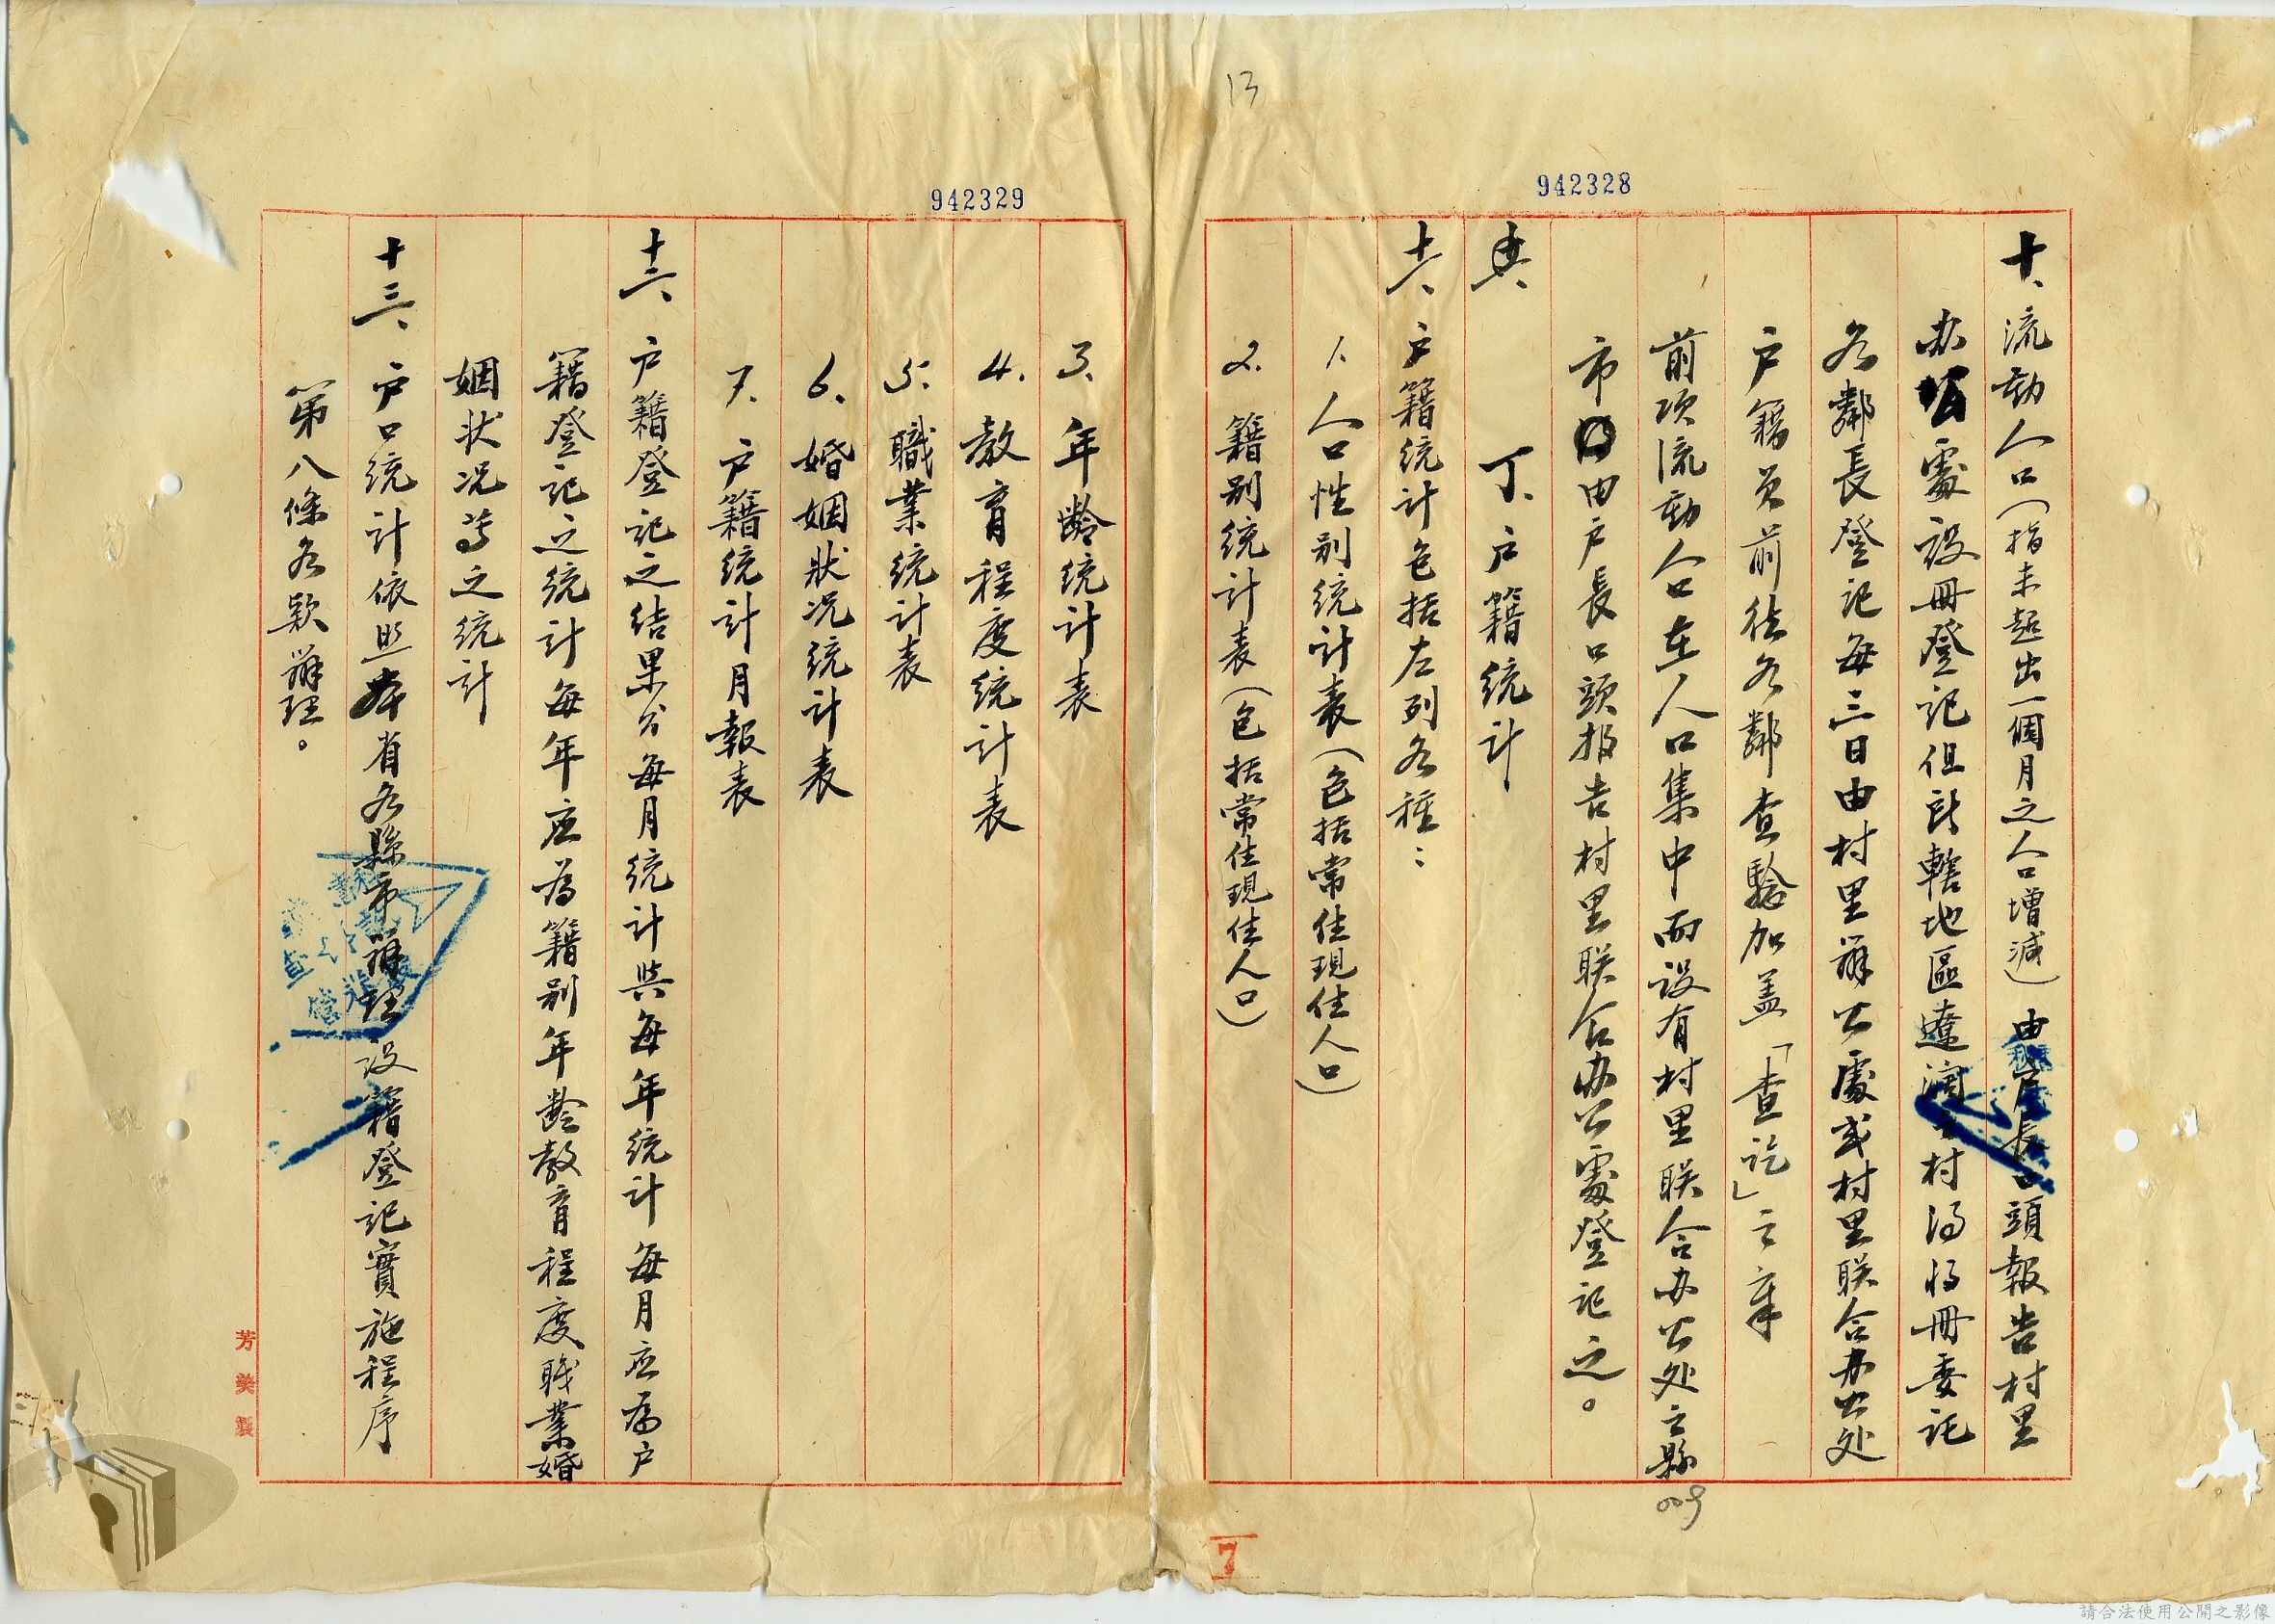 13
942328
十、流動人口（指未超出一個月之人口增減）由居長口頭報告村里
办公處設冊登記但所轄地區遼濶之村得將冊委託
各鄰長登記每三日由村里辦公處或村里联合办公处
户籍員前徃各鄰查驗加盖「查訖」之章
前項流動人口在人口集中而設有村里联合办公处之縣
市由户長口頭报告村里联合办公處登記之。
丁、户籍統計
十一、户籍統計包括左列各種：
1、人口性别統計表（包括常住現住人口）
2、籍别統計表（包括常住現住人口）
009
7
942329
3、年齡統計表
4、教育程度統計表
5、職業統計表
6、婚姻狀况統計表
7、户籍統計月報表
十二、户籍登記之結果分每月統計與每年統計每月应為户
籍登記之統計每年应為籍别年齡教育程度職業婚
姻狀况等之統計
十三、户口統計依照本省各縣市辦理設籍登記實施程序
第八條各款辦理。
芳美製
請合法使用公開之影像